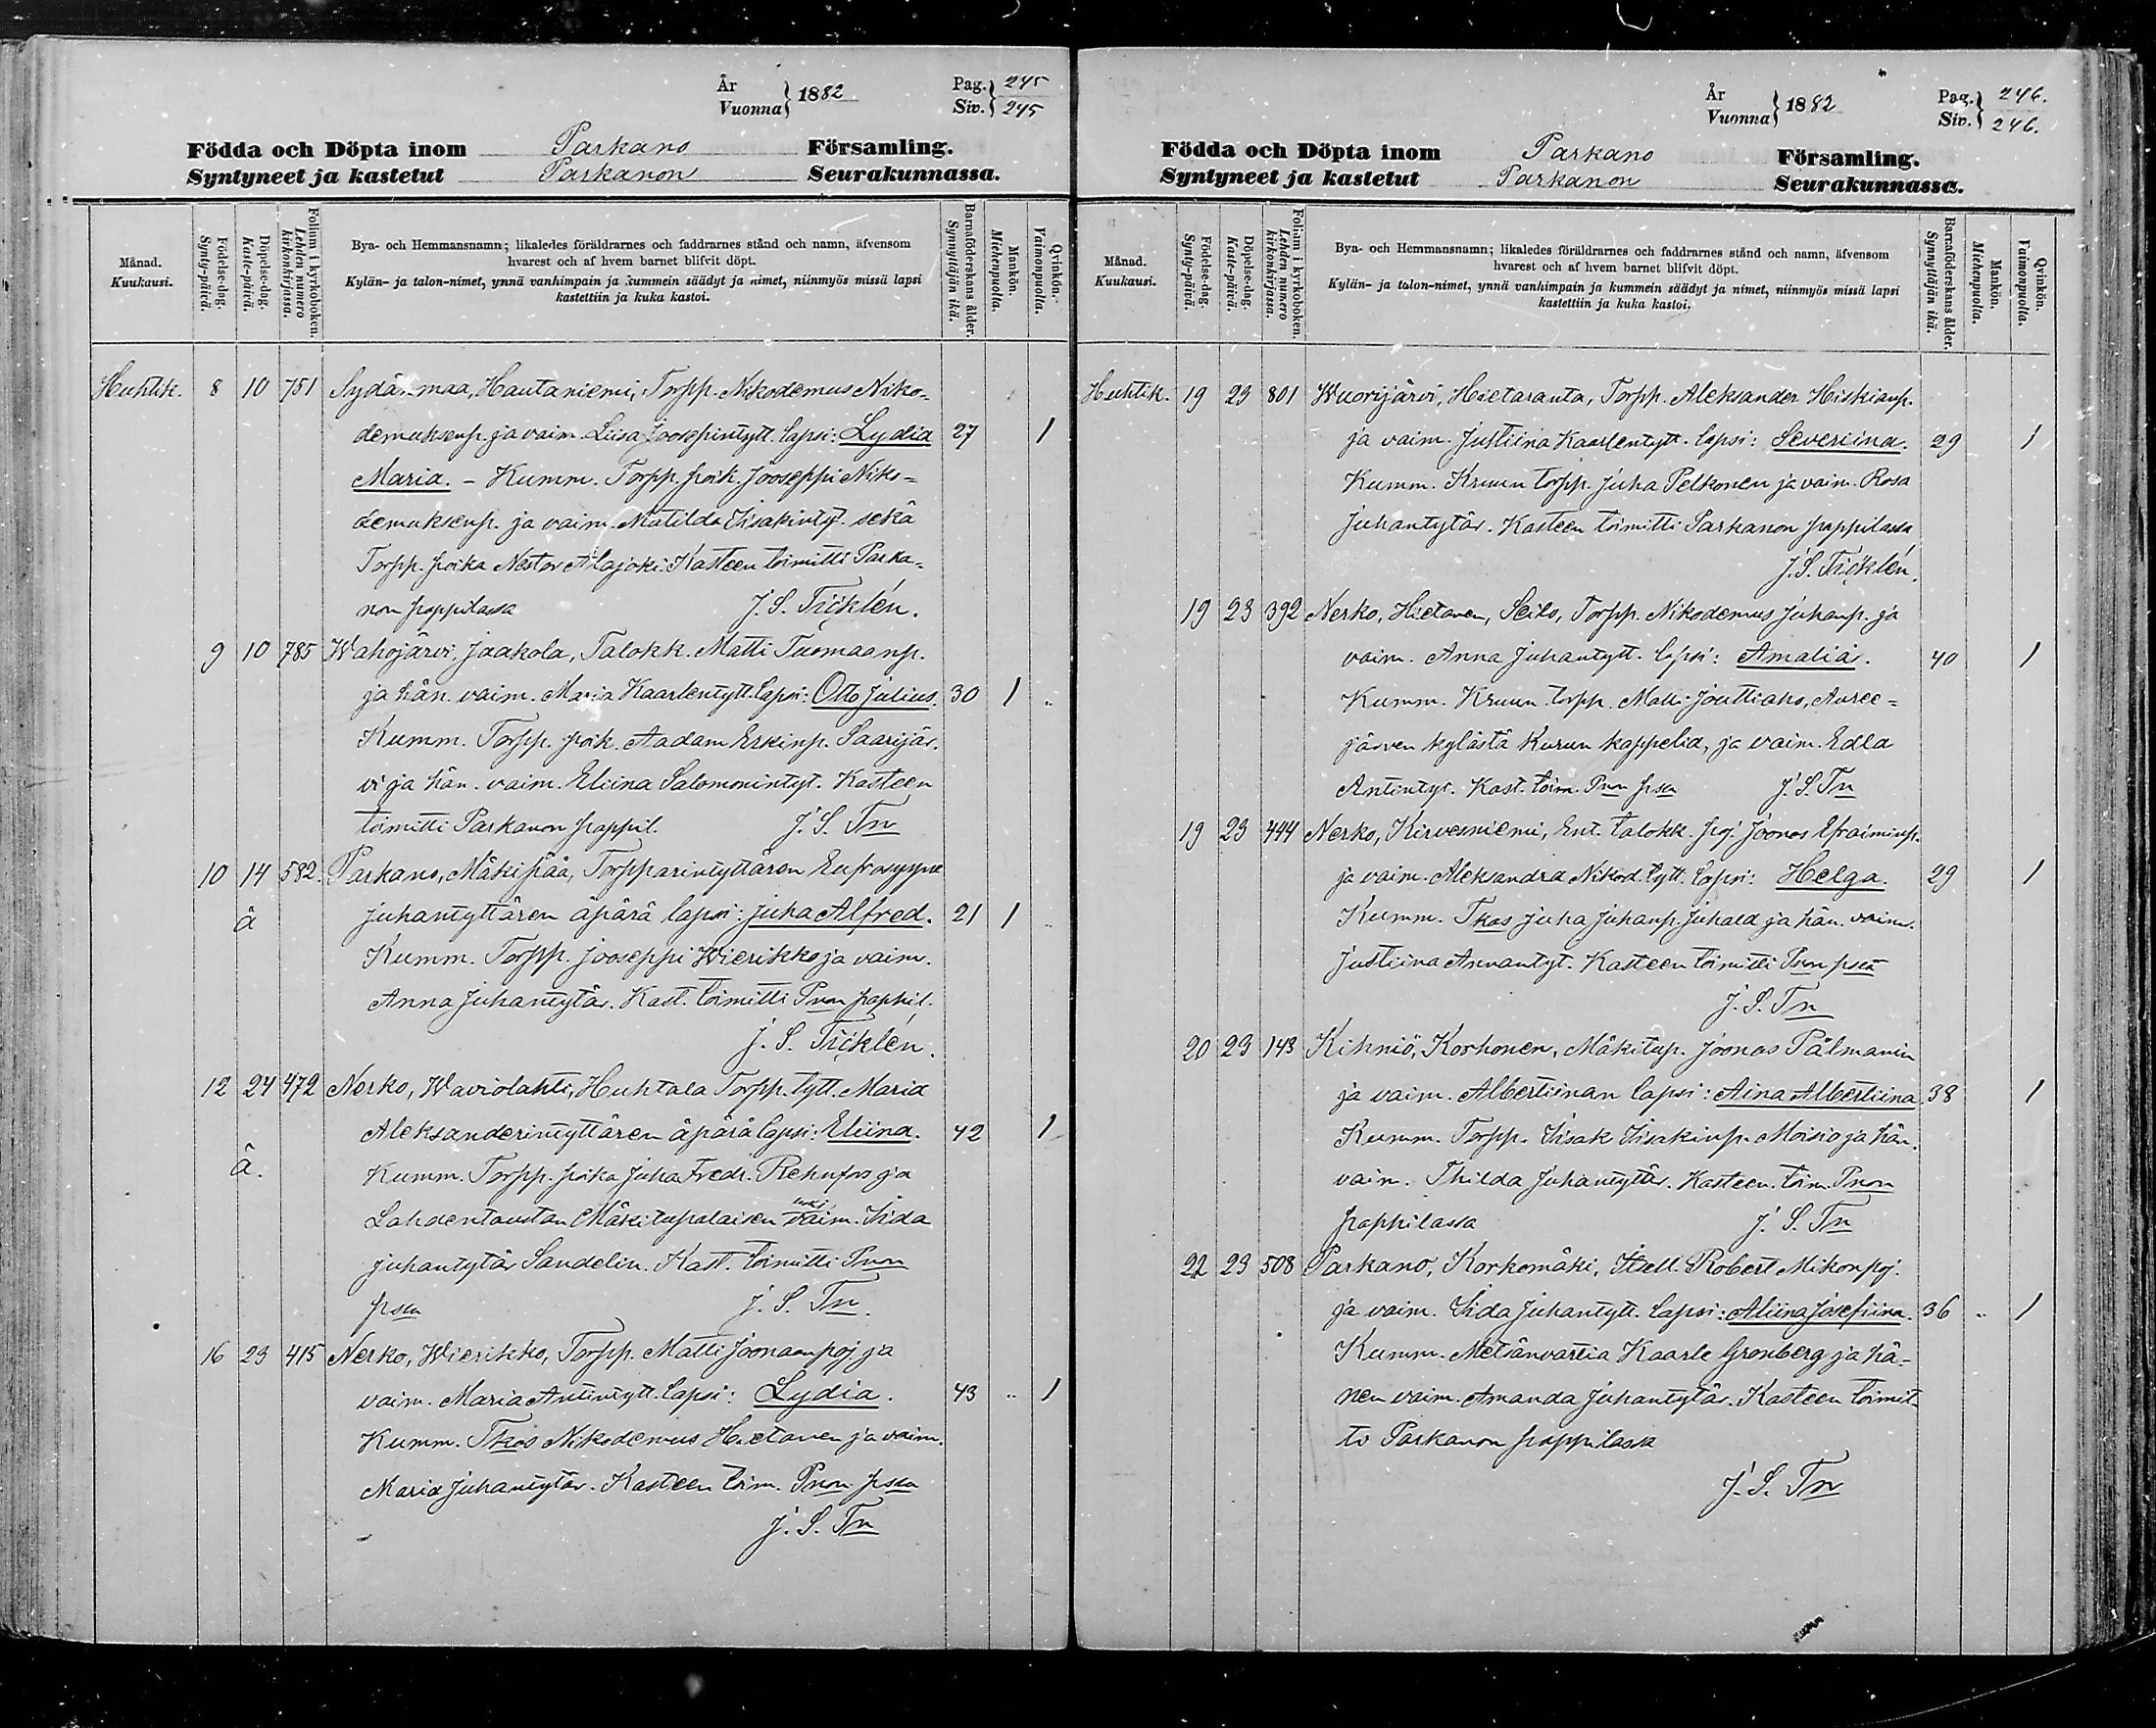 År
Vuonna } 1882
Pag. } 245
Siv. } 245
Födda och Döpta inom Parkano Församling.
Syntyneet ja kastetut Parkanon Seurakunnassa.
Månad.
Kuukausi.
Födelse-dag.
Synty-päivä.
Döpelse-dag.
Kaste-päivä.
Folium i kyrkoboken.
Lehden numero kirkonkirjassa.
Bya- och Hemmansnamn; likaledes föräldrarnes och faddrarnes stånd och namn, äfvensom
hvarest och af hvem barnet blifvit döpt.
Kylän- ja talon-nimet, ynnä vanhimpain ja kummein säädyt ja nimet, niinmyös missä lapsi
kastettiin ja kuka kastoi.
Barnaföderskans ålder.
Synnyttäjän ikä.
Mankön.
Miehenpuolia.
Qvinkön.
Vaimonpuolia.
Huhtik. 8 10 751 Sydänmaa, Hautaniemi, Torpp. Nikodemus Niko-
demuksenp. ja vaim. Liisa Joosepintytt. lapsi: Lydia 27 1
Maria. - Kumm. Torpp. poik. Jooseppi Niko-
demuksenp. ja vaim. Matilda Iisakintyt. sekä
Torpp. poika Nestor Alajoki. Kasteen toimitti Parka-
non pappilassa J. S. Ticklén.
9 10 785 Wahojärvi, Jaakola, Talokk. Matti Tuomaanp.
ja hän. vaim. Maria Kaarlentytt. lapsi: Otto Julius. 30 1 "
Kumm. Torpp. poik. Aadam Erkinp. Saarijär-
vi ja hän. vaim. Eliina Salomonintyt. Kasteen
toimitti Parkanon pappil. J. S. Tn
10 14 582. Parkano, Mäkipää, Torpparintyttären Eufrosyyne
ä Juhantyttären äpärä lapsi: Juha Alfred. 21 1 "
Kumm. Torpp. Jooseppi Wierikko ja vaim.
Anna Juhantytär. Kast. toimitti Pnon pappil.
J. S. Ticklén.
12 24 472 Nerko, Waviolahti, Huhtala Torpp. tytt. Maria
Aleksanderintyttären äpärä lapsi: Eliina. 42 1
ä. Kumm. Torpp. poika Juha Fredr. Rehufors ja
Lahdentaustan Mäkitupalaisen vaim. Iida
Juhantytär Sandelin. Kast. toimitti Pnon
pssa J. S. Tn.
16 23 415 Nerko, Wierikko, Torpp. Matti Joonaanpoj. ja
vaim. Maria Antintytt. lapsi: Lydia. 43 " 1
Kumm. Tkas Nikodemus Hietanen ja vaim.
Maria Juhantytär. Kasteen toim. Pnon pssa
J. S. Tn
År
Vuonna } 1882
Pag. } 246.
Siv. } 246.
Födda och Döpta inom Parkano Församling.
Syntyneet ja kastetut Parkanon Seurakunnassa.
Månad.
Kuukausi.
Födelse-dag.
Synty-päivä.
Döpelse-dag.
Kaste-päivä.
Folium i kyrkoboken.
Lehden numero kirkonkirjassa.
Bya- och Hemmansnamn; likaledes föräldrarnes och faddrarnes stånd och namn, äfvensom
hvarest och af hvem barnet blifvit döpt.
Kylän- ja talon-nimet, ynnä vanhimpain ja kummein säädyt ja nimet, niinmyös missä lapsi
kastettiin ja kuka kastoi.
Barnaföderskans ålder.
Synnyttäjän ikä.
Mankön.
Miehenpuolia.
Qvinkön.
Vaimonpuolia.
Huhtik. 19 23 801 Wuorijärvi, Hietaranta, Torpp. Aleksander Hiskianp.
ja vaim. Justiina Kaarlentytt. lapsi: Severiina. 29 1
Kumm. Kruun torpp. Juha Pelkonen ja vaim. Rosa
Juhantytär. Kasteen toimitti Parkanon pappilassa
J. S. Ticklén.
19 23 392 Nerko, Hietanen, Seilo, Torpp. Nikodemus Juhanp. ja
vaim. Anna Juhantytt. lapsi: Amalia. 40 1
Kumm. Kruun torpp. Matti Jouttiaho, Auree-
järven kylästä Kurun kappelia, ja vaim. Edla
Antintyt. Kast. toim. Pnon pssa J. S. Tn
19 23 444 Nerko, Kirvesniemi, Ent. talokk. poj. Joonas Efraiminp.
ja vaim. Aleksandra Nikod. tytt. lapsi: Helga. 29 1
Kumm. Tkas Juha Juhanp. Juhala ja hän. vaim.
Justiina Annantyt. Kasteen toimitti Pnon pssa
J. S. Tn
20 23 143 Kihniö, Korhonen, Mäkitup. Joonas Pålmanin
ja vaim. Albertiinan lapsi: Aina Albertiina 38 1
Kumm. Torpp. Iisak Iisakinp. Moisio ja hän.
vaim. Thilda Juhantytär. Kasteen toim. Pnon
pappilassa J. S. Tn
22 23 508 Parkano, Korkomäki, Itsell. Robert Mikonpoj.
ja vaim. Iida Juhantytt. lapsi: Aliina Josefiina. 36 " 1
Kumm. Metsänvartia Kaarle Grönberg ja hä-
nen vaim. Amanda Juhantytär. Kasteen toimit-
ti Parkanon pappilassa
J. S. Tn